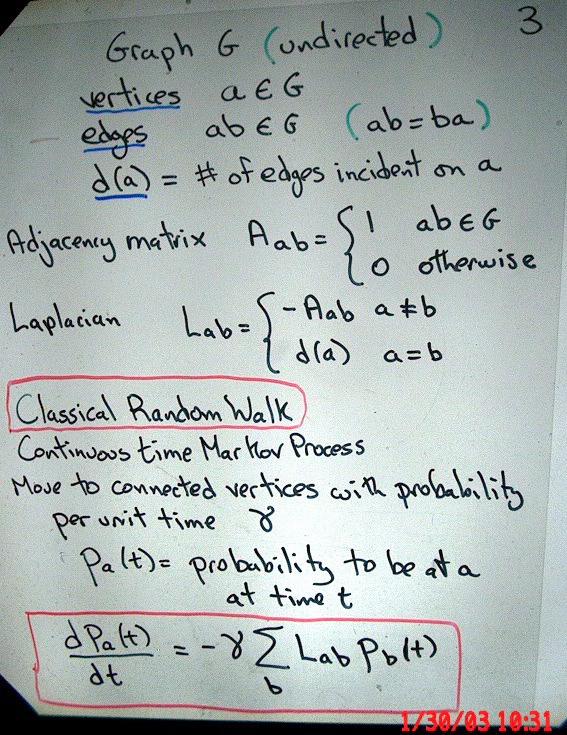 3
Graph G (undirected)
vertices a ∈ G
edges ab ∈ G (ab = ba)
d(a) = # of edges incident on a
Adjacency matrix A_ab = { 1 ab ∈ G
0 otherwise
Laplacian L_ab = { -A_ab a ≠ b
d(a) a = b
Classical Random Walk
Continuous time Markov Process
Move to connected vertices with probability
per unit time γ
P_a(t) = probability to be at a
at time t
dP_a(t)/dt = -γ ∑_b L_ab P_b(t)
1/30/03 10:31